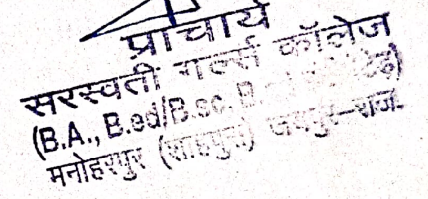 प्राचार्य
सरस्वती गर्ल्स कॉलेज
(B.A., B.ed/B.sc. B.
मनोहरपुर (शाहपुरा) जयपुर-राज.